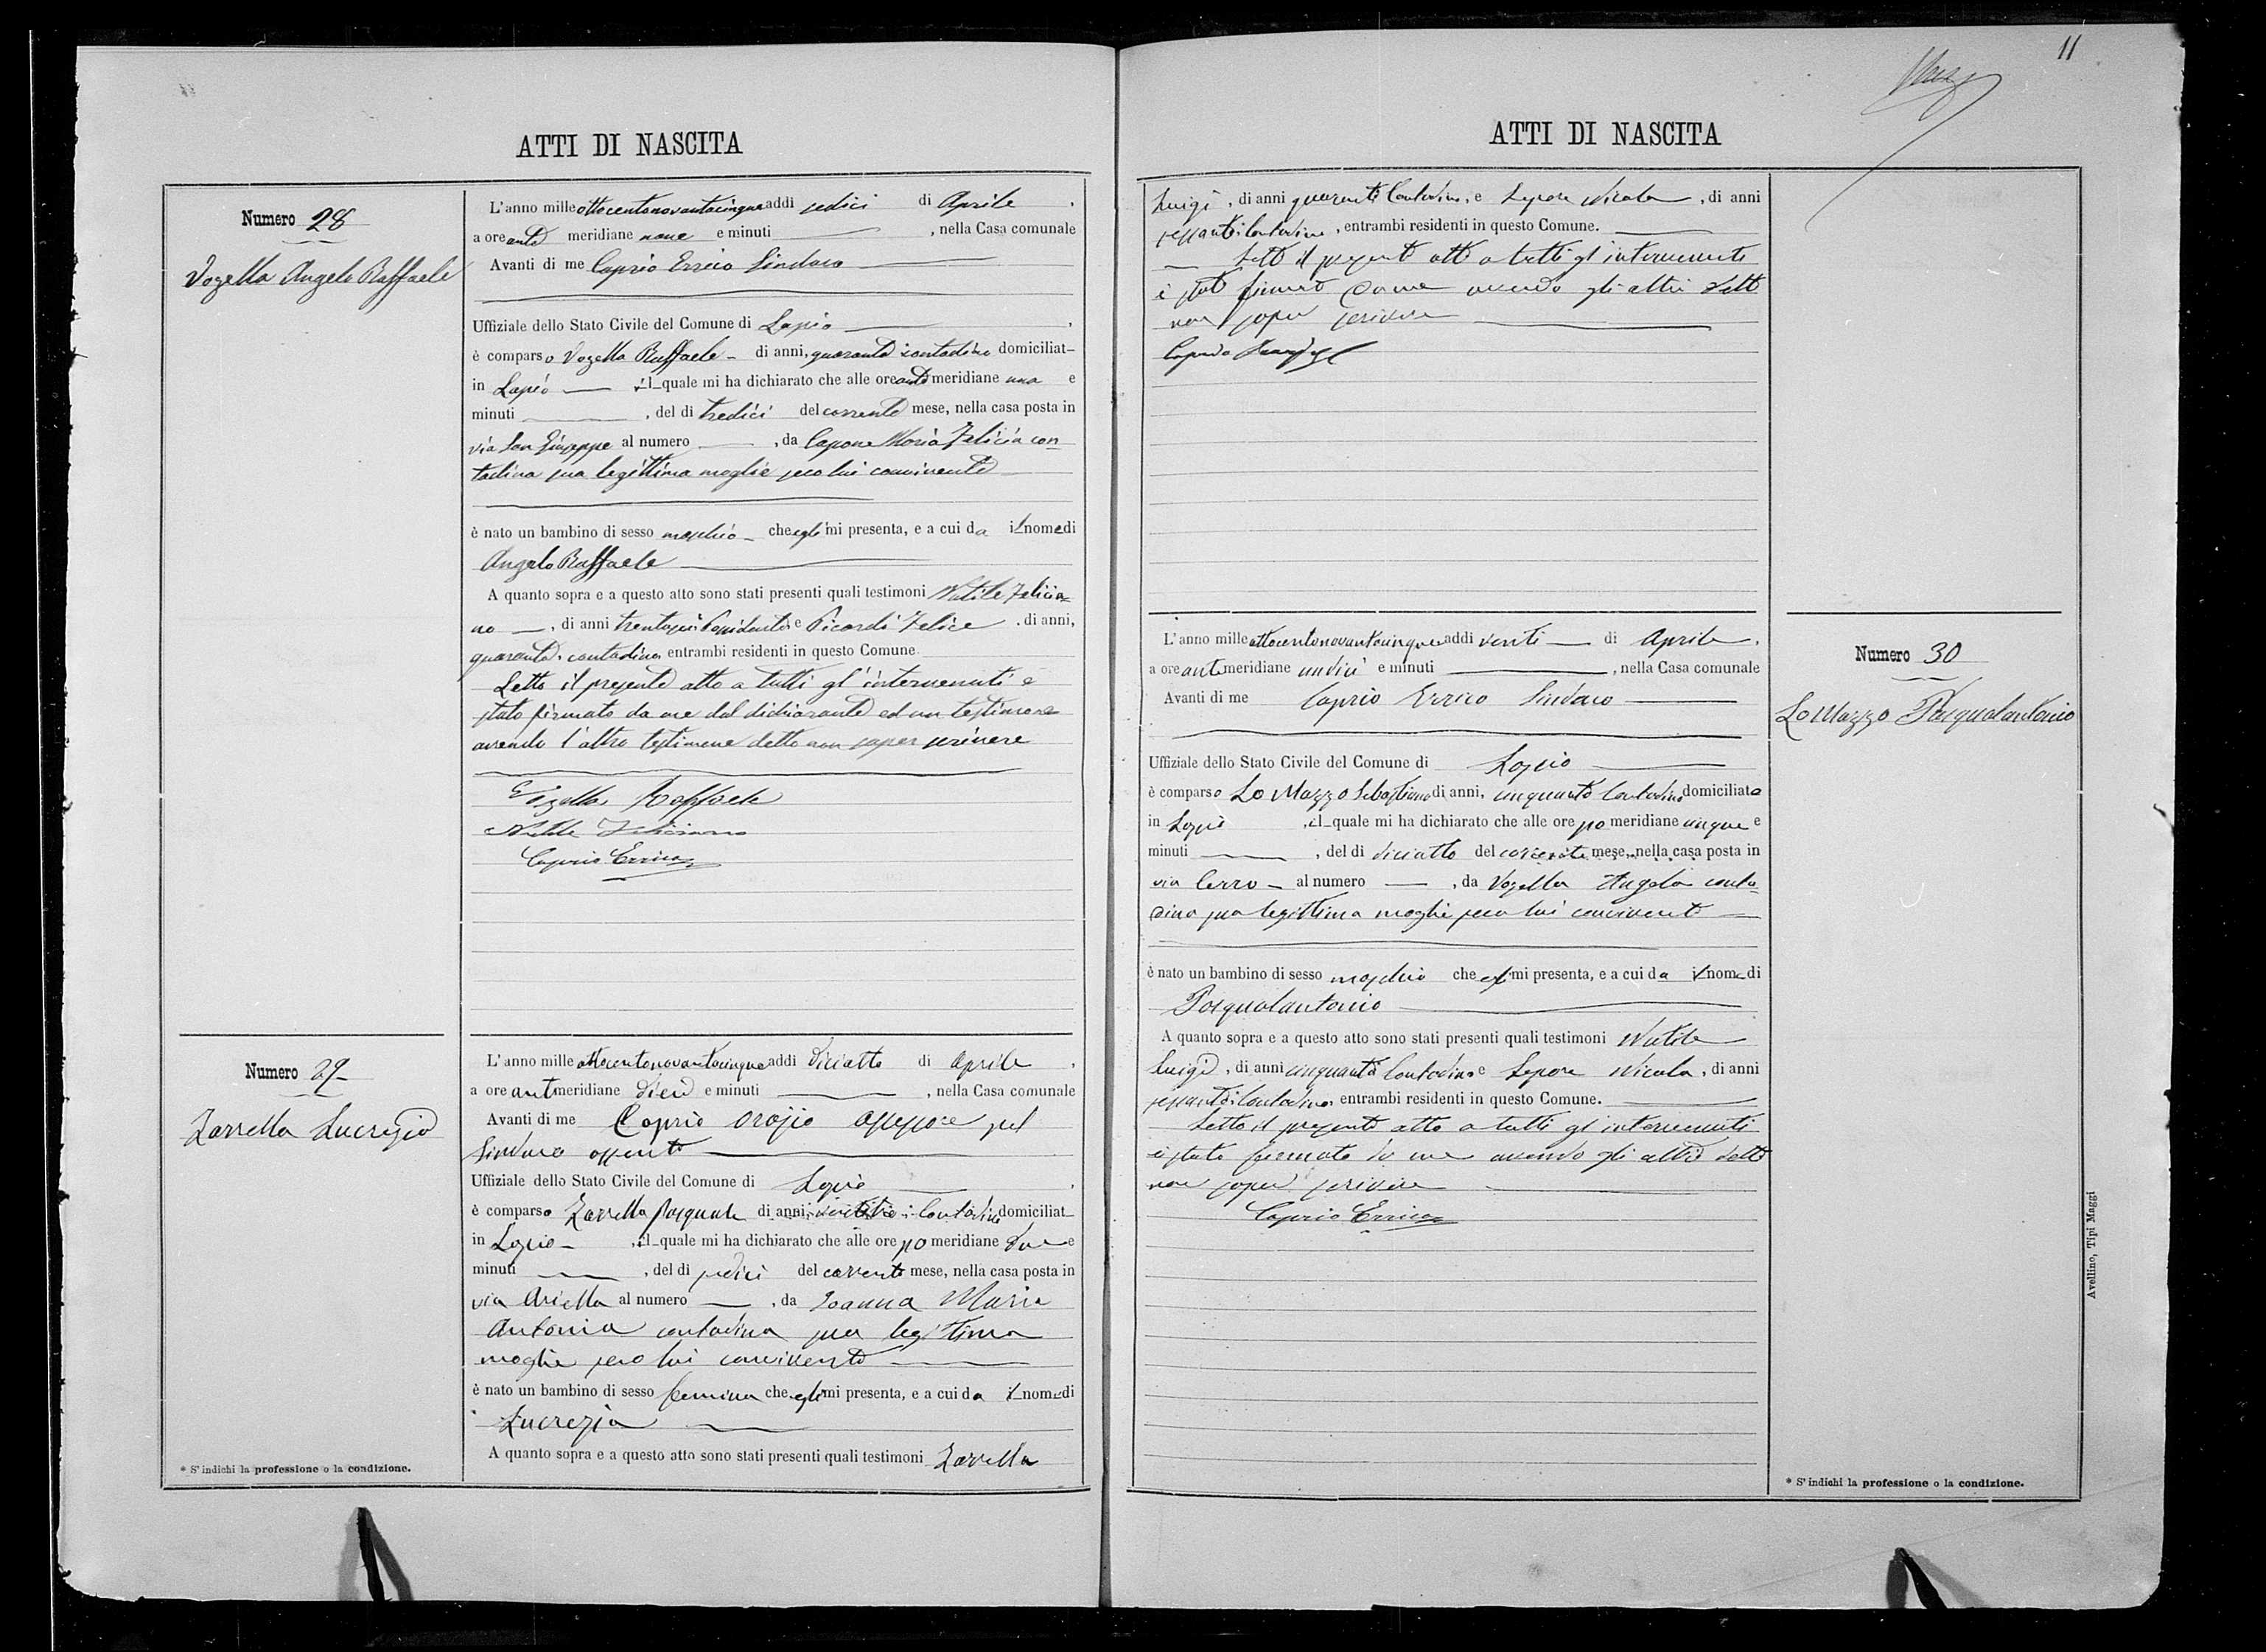 ATTI DI NASCITA
Numero 28
Vozella Angelo Raffaele
L'anno mille ottocentonovantacinque addì sedici di Aprile,
a ore ante meridiane nove e minuti , nella Casa comunale
Avanti di me Caprio Errico Sindaco
Uffiziale dello Stato Civile del Comune di Lapio,
è comparso Vozella Raffaele di anni, quaranta contadino domiciliat
in Lapio il quale mi ha dichiarato che alle ore ante meridiane una e
minuti , del dì tredici del corrente mese, nella casa posta in
via San Giuseppe al numero , da Capone Maria Felicia con-
tadina sua legittima moglie seco lui convivente
è nato un bambino di sesso maschio che egli mi presenta, e a cui da il nome di
Angelo Raffaele
A quanto sopra e a questo atto sono stati presenti quali testimoni Natile Felicia=
no , di anni trentasei e Picardi Felice , di anni,
quaranta, contadino entrambi residenti in questo Comune
Letto il presente atto a tutti gl'intervenuti è
stato firmato da me dal dichiarante ed un testimone
avendo l'altro testimone detto non saper scrivere
Vozella Raffaele
Natile Feliciano
Caprio Errico
Numero 29
Zarrella Lucrezia
L'anno mille ottocentonovantacinque addì diciotto di Aprile,
a ore ant meridiane dieci e minuti , nella Casa comunale
Avanti di me Caprio Assessore pel
Sindaco assente
Uffiziale dello Stato Civile del Comune di Lapio,
è comparso Zarrella Pasquale di anni, contadino domiciliat
in Lapio , il quale mi ha dichiarato che alle ore po meridiane due e
minuti , del dì sedici del corrente mese, nella casa posta in
via Ariella al numero , da Ioanna Maria
Antonia contadina sua legittima
moglie seco lui convivente
è nato un bambino di sesso femina che egli mi presenta, e a cui da il nome di
Lucrezia
A quanto sopra e a questo atto sono stati presenti quali testimoni Zarrella
* S'indichi la professione o la condizione.
11
ATTI DI NASCITA
Luigi, di anni quaranta contadino, e Lepore Nicola, di anni
sessanta contadino, entrambi residenti in questo Comune.
Letto il presente atto a tutti gl'intervenuti
è stato firmato da me avendo gli altri detto
non saper scrivere
Numero 30
Lo Mazzo Pasqualantonio
L'anno mille ottocentonovantacinque addì venti di Aprile,
a ore ant meridiane undici e minuti , nella Casa comunale
Avanti di me Caprio Errico Sindaco
Uffiziale dello Stato Civile del Comune di Lapio
è comparso Lo Mazzo Sebastiano di anni, cinquanta contadino domiciliato
in Lapio , il quale mi ha dichiarato che alle ore po meridiane cinque e
minuti , del dì diciotto del corrente mese, nella casa posta in
via Cerro al numero , da Vozella Angela conta-
dina sua legittima moglie seco lui convivente
è nato un bambino di sesso maschio che egli mi presenta, e a cui da il nome di
Pasqualantonio
A quanto sopra e a questo atto sono stati presenti quali testimoni Natile
Luigi, di anni cinquanta contadino e Lepore Nicola, di anni
sessanta contadino, entrambi residenti in questo Comune.
Letto il presente atto a tutti gl'intervenuti
è stato firmato da me avendo gli altri detto
non saper scrivere
Caprio Errico
* S'indichi la professione o la condizione.
Avellino, Tipi Maggi